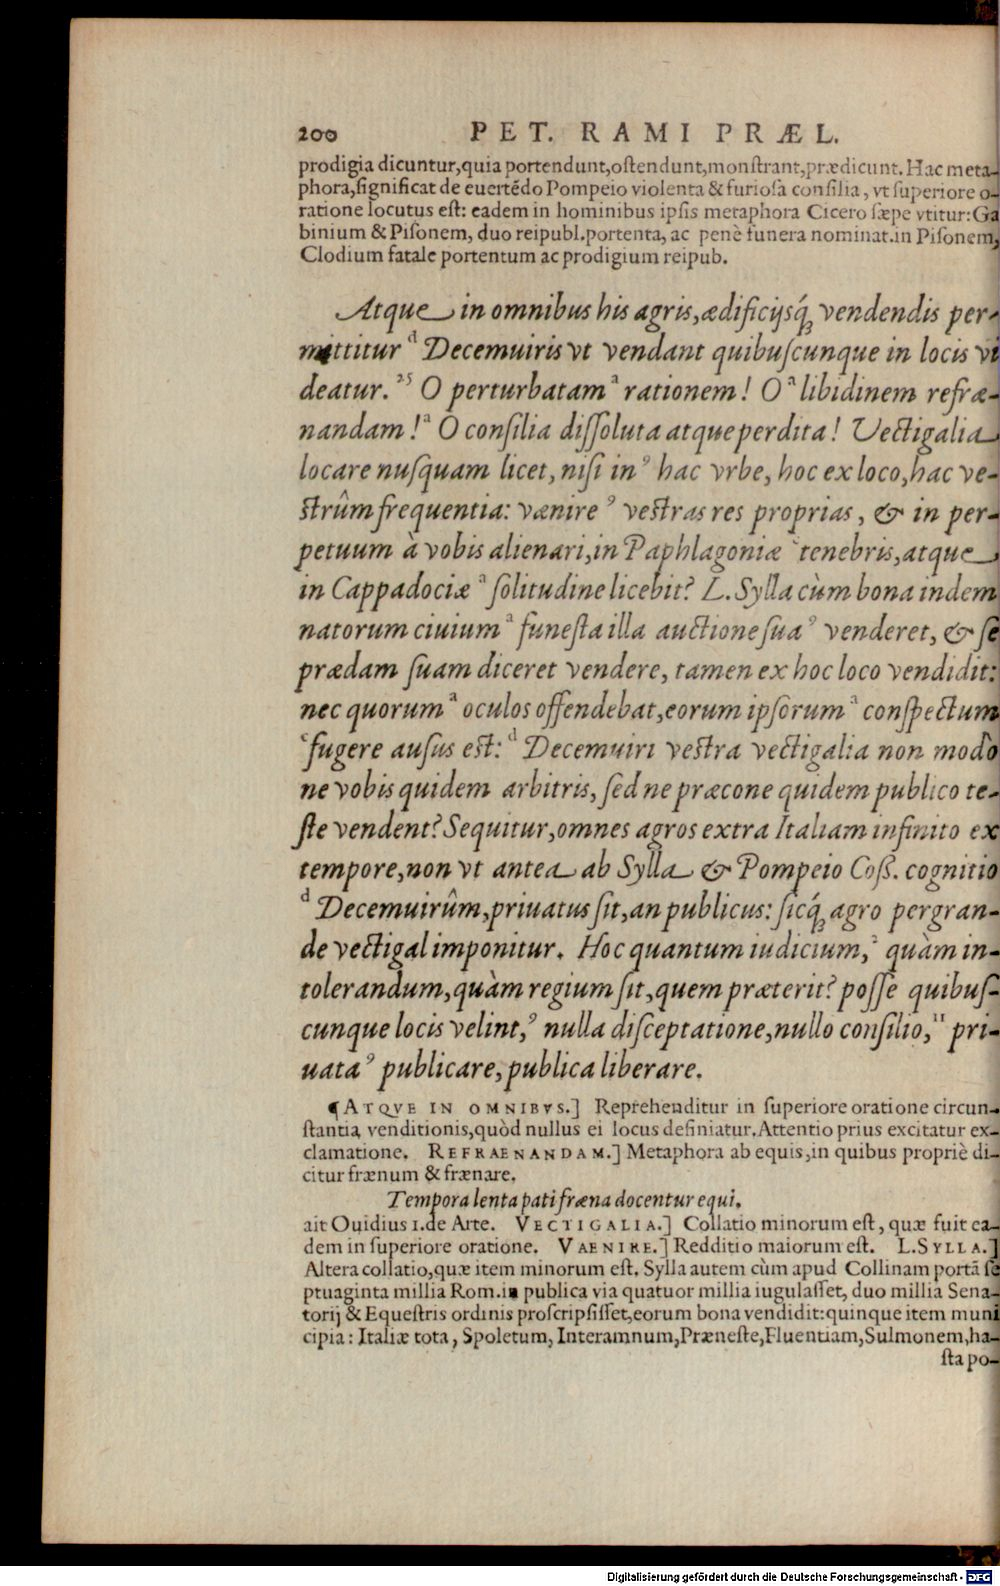 200 PET. RAMI PRÆL.
prodigia dicuntur,quia portendunt,oſtendunt,monſtrant,prædicunt. Hac meta-
phora,ſignificat de euertēdo Pompeio violenta & furioſa conſilia, vt ſuperiore o-
ratione locutus eſt: eadem in hominibus ipſis metaphora Cicero ſæpe vtitur: Ga
binium & Piſonem, duo reipubl.portenta, ac penè funera nominat.in Piſonem,
Clodium fatale portentum ac prodigium reipub.
Atque in omnibus his agris,ædificijsq́; vendendis per-
mittitur ᵈ Decemuiris vt vendant quibuſcunque in locis vi
deatur. ²⁵ O perturbatam ᵃ rationem! O ᵃ libidinem refræ-
nandam! ᵃ O conſilia diſſoluta atque perdita! Vectigalia
locare nuſquam licet, niſi in ⁹ hac vrbe, hoc ex loco, hac ve-
ſtrûm frequentia: vænire ⁹ veſtras res proprias, & in per-
petuum à vobis alienari,in Paphlagoniæ ᶜ tenebris,atque
in Cappadociæ ᵃ ſolitudine licebit? L. Sylla cùm bona indem
natorum ciuium ᵃ funeſta illa auctione ſua ⁹ venderet, & ſe
prædam ſuam diceret vendere, tamen ex hoc loco vendidit:
nec quorum ᵃ oculos offendebat,eorum ipſorum ᵃ conſpectum
ᶜ fugere auſus eſt: ᵈ Decemuiri veſtra vectigalia non modò
ne vobis quidem arbitris, ſed ne præcone quidem publico te-
ſte vendent? Sequitur,omnes agros extra Italiam infinito ex
tempore,non vt antea ab Sylla & Pompeio Coſſ. cognitio
ᵈ Decemuirûm,priuatus ſit,an publicus: ſicq́; agro pergran-
de vectigal imponitur. Hoc quantum iudicium, ² quàm in-
tolerandum,quàm regium ſit,quem præterit? poſſe quibuſ-
cunque locis velint, ⁹ nulla diſceptatione,nullo conſilio, ¹¹ pri-
uata ⁹ publicare,publica liberare.
¶ATQVE IN OMNIBVS.] Reprehenditur in ſuperiore oratione circun-
ſtantia venditionis,quòd nullus ei locus definiatur. Attentio prius excitatur ex-
clamatione. REFRAENANDAM.] Metaphora ab equis,in quibus propriè di-
citur frænum & frænare.
Tempora lenta pati fræna docentur equi.
ait Ouidius 1.de Arte. VECTIGALIA.] Collatio minorum eſt, quæ fuit ea-
dem in ſuperiore oratione. VAENIRE.] Redditio maiorum eſt. L.SYLLA.]
Altera collatio,quæ item minorum eſt. Sylla autem cùm apud Collinam portā ſe
ptuaginta millia Rom.in publica via quatuor millia iugulaſſet, duo millia Sena-
torij & Equeſtris ordinis proſcripſiſſet,eorum bona vendidit:quinque item muni
cipia: Italiæ tota, Spoletum, Interamnum,Præneſte,Fluentiam,Sulmonem,ha-
ſta po-
Digitalisierung gefördert durch die Deutsche Forschungsgemeinschaft - DFG